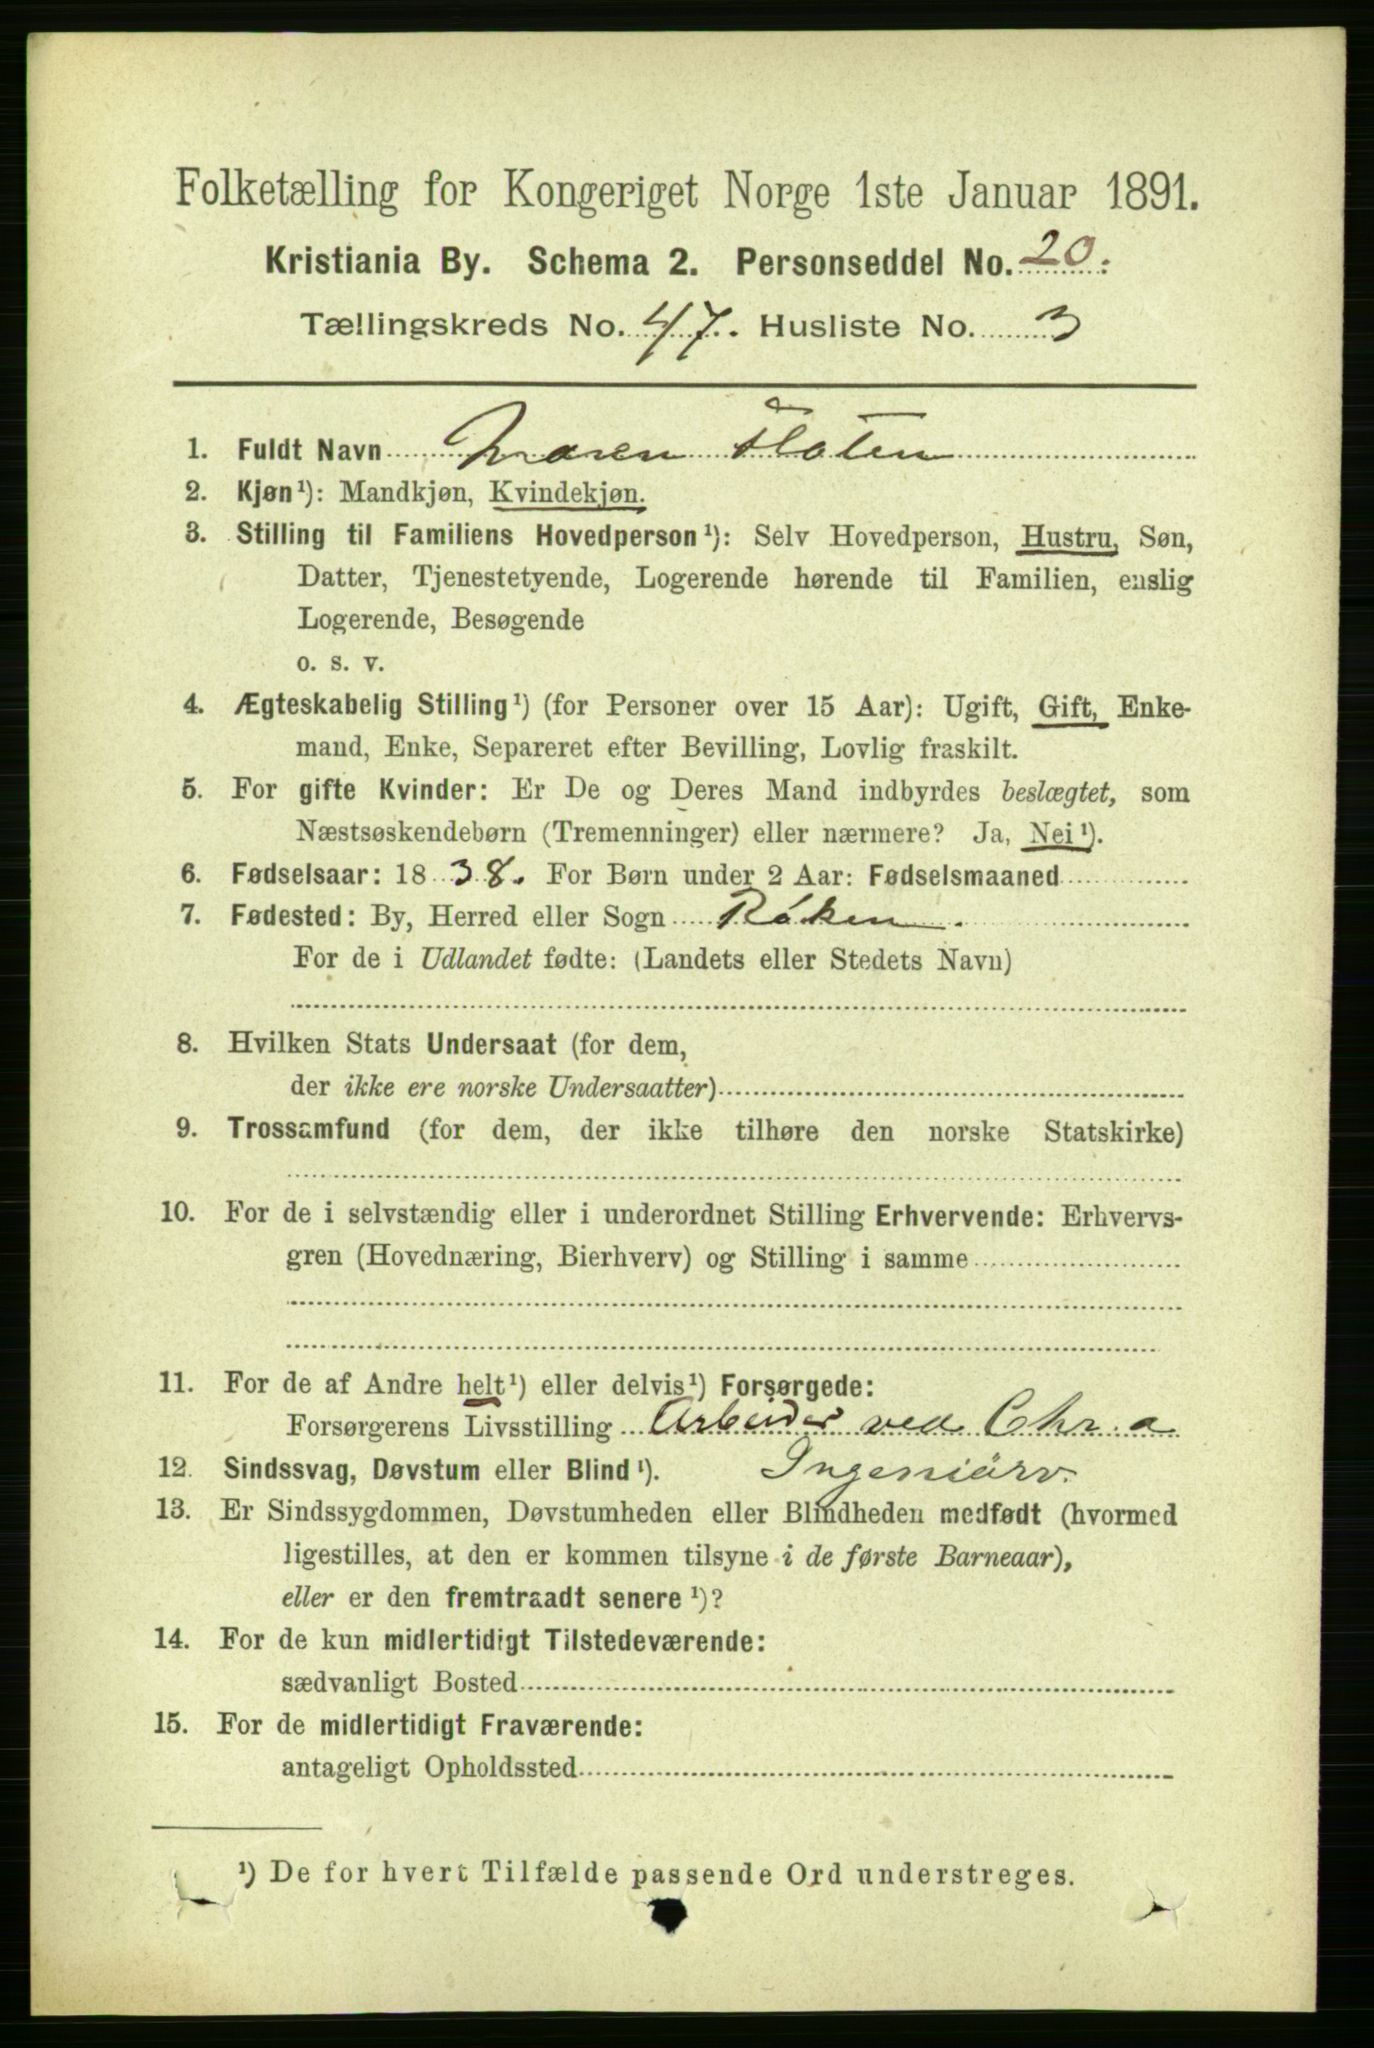 Folketælling for Kongeriget Norge 1ste Januar 1891.
Kristiania By. Schema 2. Personseddel No. 20.
Tællingskreds No. 47. Husliste No. 3
1. Fuldt Navn Maren Floten
2. Kjøn¹): Mandkjøn, Kvindekjøn.
3. Stilling til Familiens Hovedperson¹): Selv Hovedperson, Hustru, Søn,
Datter, Tjenestetyende, Logerende hørende til Familien, enslig
Logerende, Besøgende
o. s. v.
4. Ægteskabelig Stilling¹) (for Personer over 15 Aar): Ugift, Gift, Enke-
mand, Enke, Separeret efter Bevilling, Lovlig fraskilt.
5. For gifte Kvinder: Er De og Deres Mand indbyrdes beslægtet, som
Næstsøskendebørn (Tremenninger) eller nærmere? Ja, Nei¹).
6. Fødselsaar: 1838. For Børn under 2 Aar: Fødselsmaaned
7. Fødested: By, Herred eller Sogn Róken.
For de i Udlandet fødte: (Landets eller Stedets Navn)
8. Hvilken Stats Undersaat (for dem,
der ikke ere norske Undersaatter)
9. Trossamfund (for dem, der ikke tilhøre den norske Statskirke)
10. For de i selvstændig eller i underordnet Stilling Erhvervende: Erhvervs-
gren (Hovednæring, Bierhverv) og Stilling i samme
11. For de af Andre helt¹) eller delvis¹) Forsørgede:
Forsørgerens Livsstilling Arbeider ved Chr.a
12. Sindssvag, Døvstum eller Blind¹). Ingeniörv.
13. Er Sindssygdommen, Døvstumheden eller Blindheden medfødt (hvormed
ligestilles, at den er kommen tilsyne i de første Barneaar),
eller er den fremtraadt senere¹)?
14. For de kun midlertidigt Tilstedeværende:
sædvanligt Bosted
15. For de midlertidigt Fraværende:
antageligt Opholdssted
¹) De for hvert Tilfælde passende Ord understreges.